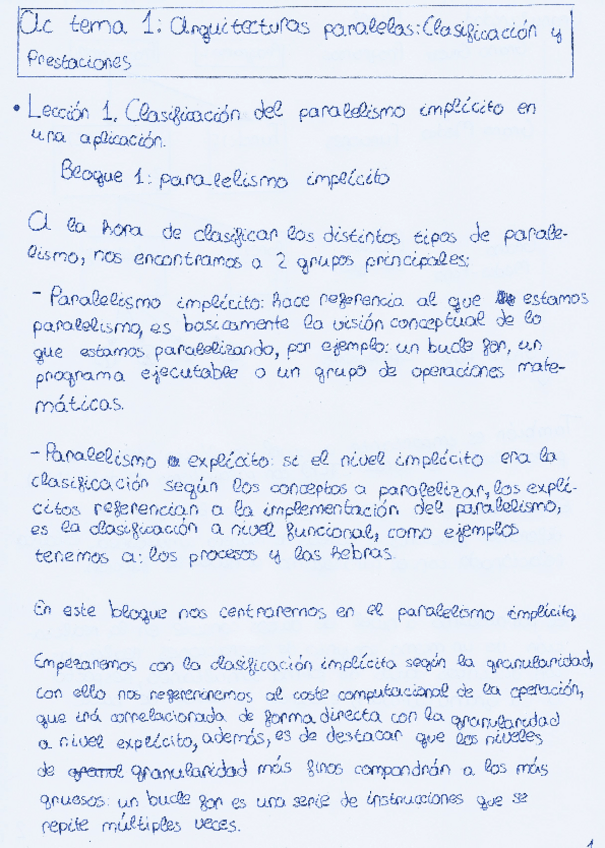 Ac tema 1: Arquitecturas paralelas: Clasificación y
Prestaciones
• Lección 1. Clasificación del paralelismo implícito en
una aplicación.
Bloque 1: paralelismo implícito
A la hora de clasificar los distintos tipos de parale-
lismo, nos encontramos a 2 grupos principales:
- Paralelismo implícito: hace referencia al que estamos
paralelismo, es basicamente la visión conceptual de lo
que estamos paralelizando, por ejemplo: un bucle for, un
programa ejecutable o un grupo de operaciones mate-
máticas.
- Paralelismo explícito: si el nivel implícito era la
clasificación según los conceptos a paralelizar, los explí-
citos referencian a la implementación del paralelismo,
es la clasificación a nivel funcional, como ejemplos
tenemos a: los procesos y las hebras.
En este bloque nos centraremos en el paralelismo implícito,
Empezaremos con la clasificación implícita según la granularidad,
con ello nos refereriremos al coste computacional de la operación,
que irá correlacionada de forma directa con la granularidad
a nivel explícito, además, es de destacar que los niveles
de granularidad más finos compondrán a los más
gruesos: un bucle for es una serie de instrucciones que se
repite múltiples veces.
1